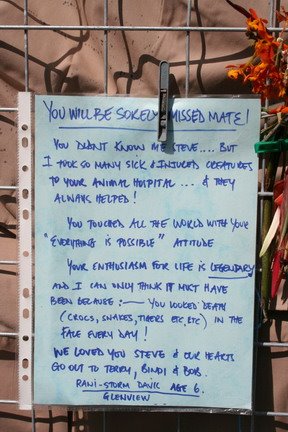 YOU WILL BE SORELY MISSED MATE!
YOU DIDN'T KNOW ME STEVE.... BUT
I TOOK SO MANY SICK & INJURED CREATURES
TO YOUR ANIMAL HOSPITAL ... & THEY
ALWAYS HELPED!
YOU TOUCHED ALL THE WORLD WITH YOUR
"EVERYTHING IS POSSIBLE" ATTITUDE
YOUR ENTHUSIASM FOR LIFE IS LEGENDARY
AND I CAN ONLY THINK IT MUST HAVE
BEEN BECAUSE :— YOU LOOKED DEATH
(CROCS, SNAKES, TIGERS ETC, ETC) IN THE
FACE EVERY DAY!
WE LOVED YOU STEVE & OUR HEARTS
GO OUT TO TERRI, BINDI & BOB.
RANI-STORM DAVIS AGE 6.
GLENVIEW